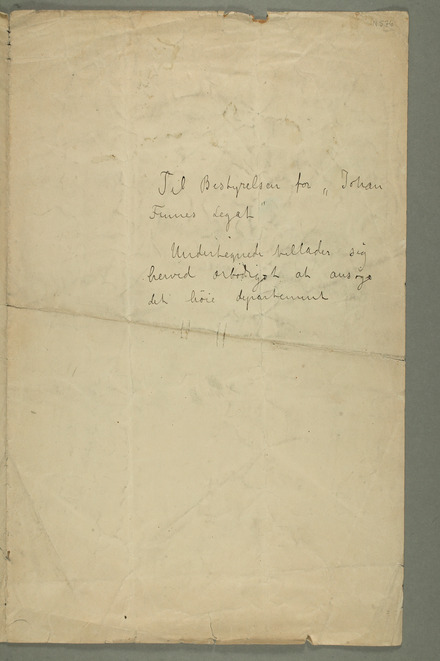 Til Bestyrelsen for „Johan
Finnes Legat"
Undertegnede tillader sig
herved ærbödigst at ansøge
det höie departement